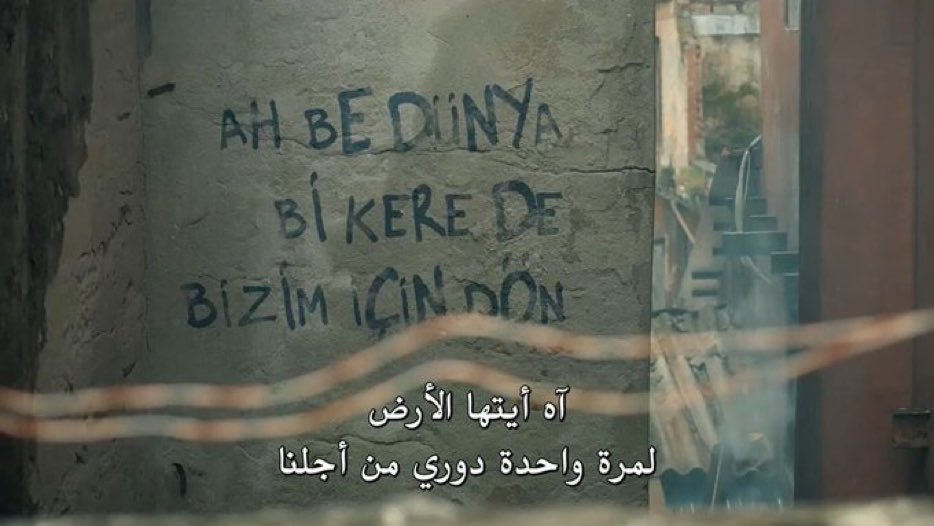 AH BE DÜNYA
Bİ KERE DE
BİZİM İÇİN DÖN
آه أيتها الأرض
لمرة واحدة دوري من أجلنا